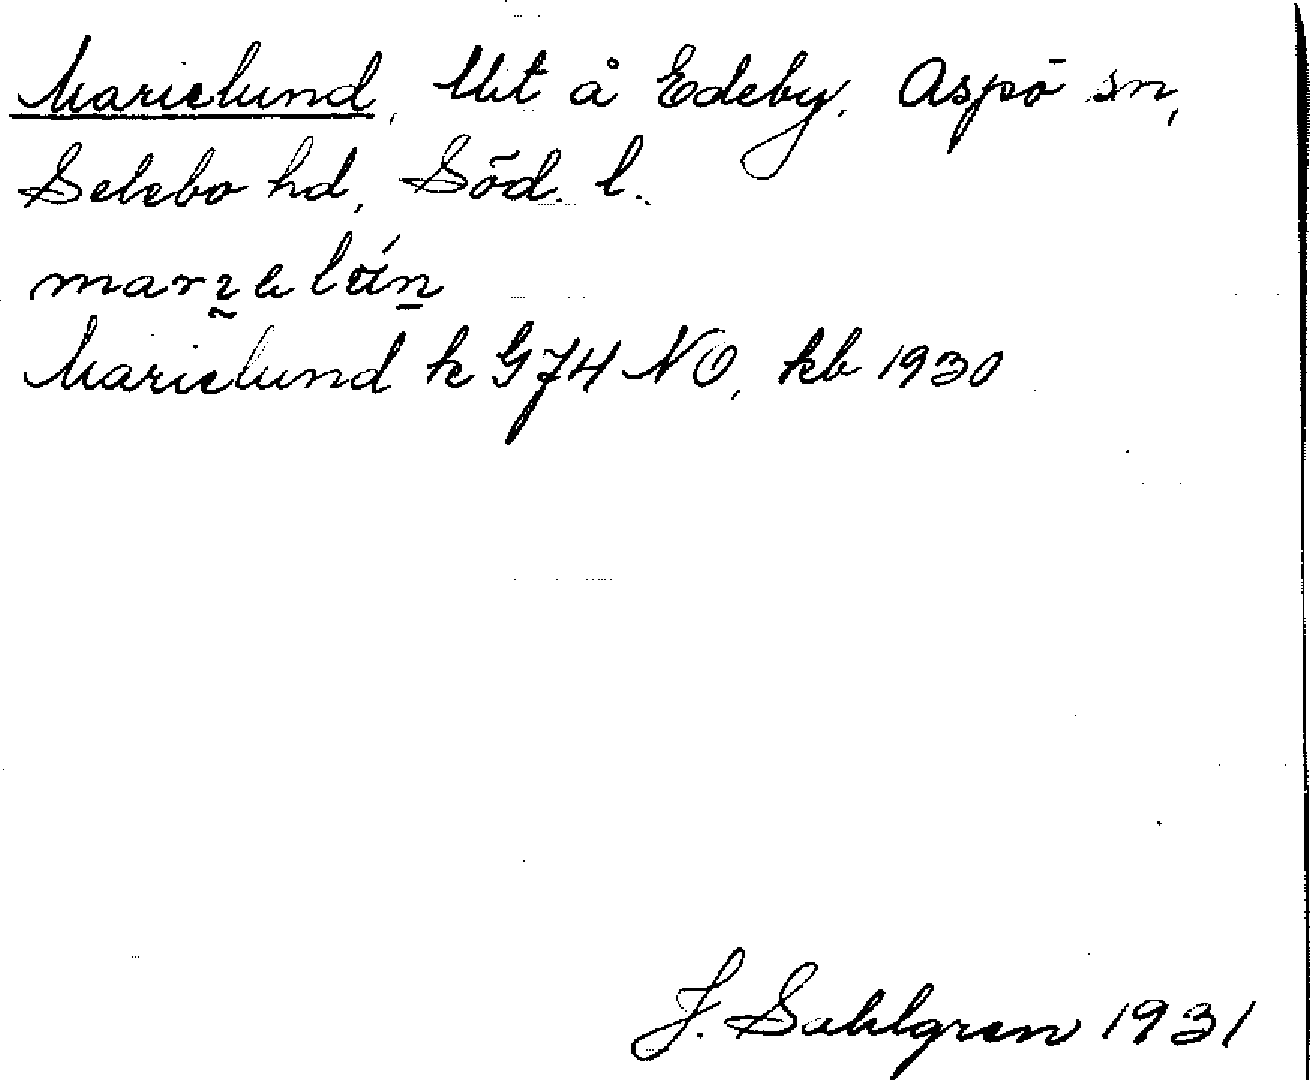 Marielund, lht å Edeby, Aspö sn,
Selebo hd, Söd. l.
Marielund k G74 NO, kb 1930
J. Sahlgren 1931